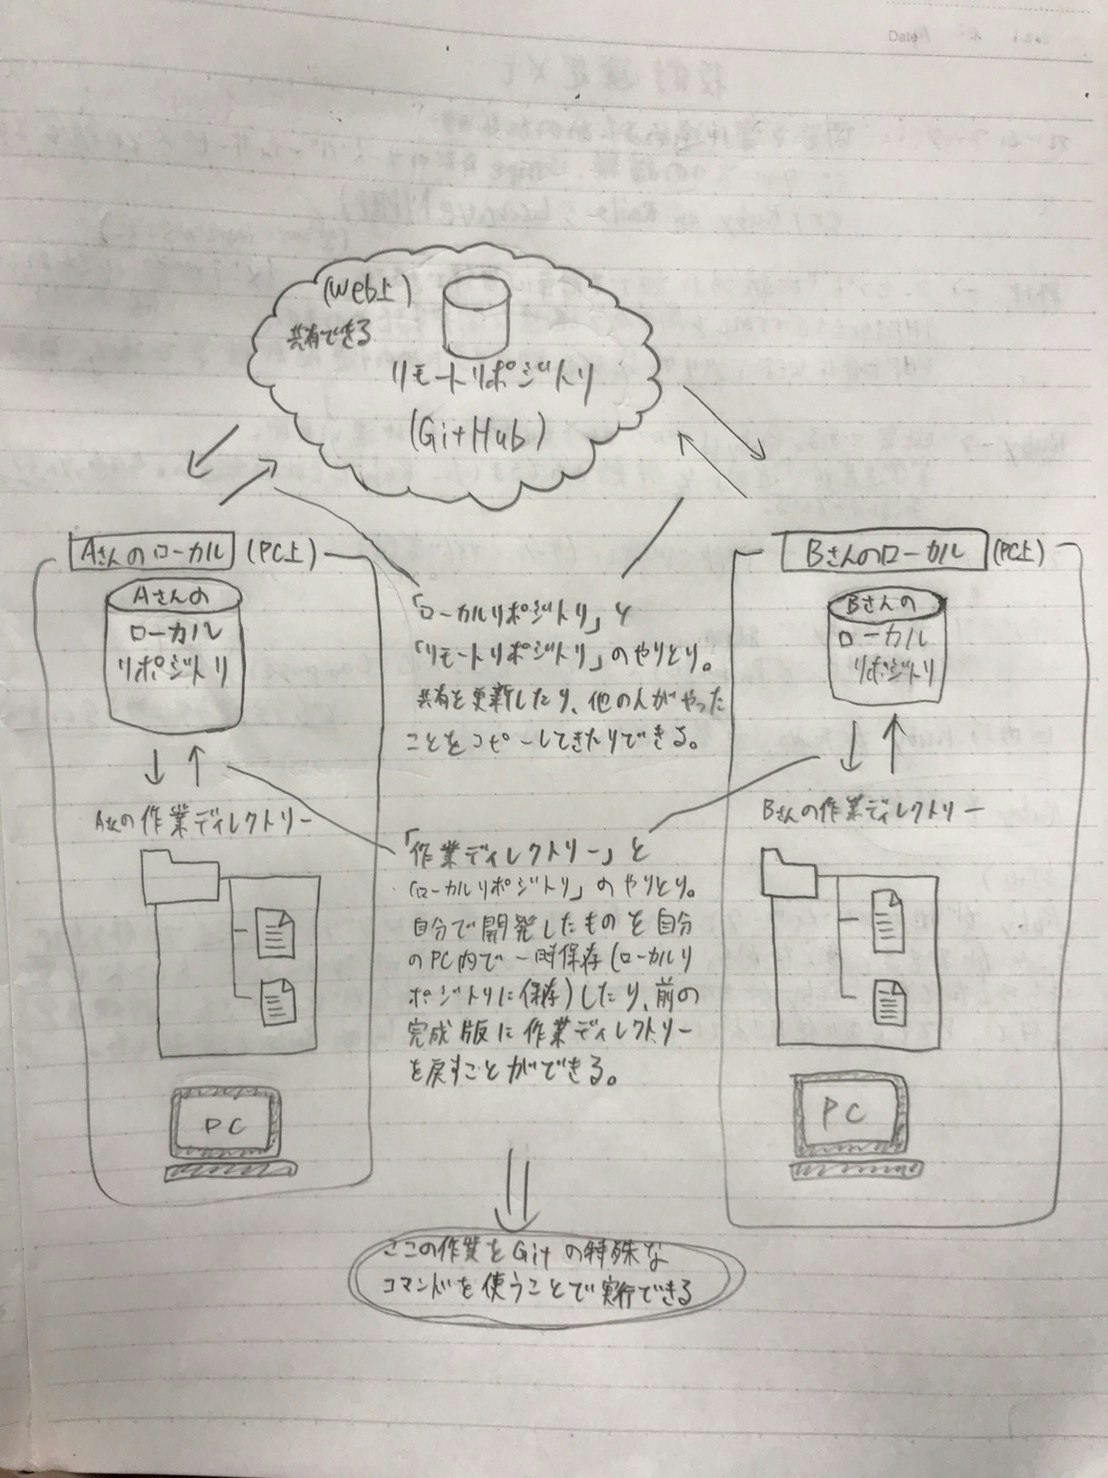 Date
(Web上)
共有できる
リモートリポジトリ
(GitHub)
Aさんのローカル (PC上)
Aさんの
ローカル
リポジトリ
Bさんのローカル (PC上)
Bさんの
ローカル
リポジトリ
「ローカルリポジトリ」と
「リモートリポジトリ」のやりとり。
共有を更新したり、他の人がやった
ことをコピーしてきたりできる。
Aさんの作業ディレクトリー
Bさんの作業ディレクトリー
「作業ディレクトリー」と
「ローカルリポジトリ」のやりとり。
自分で開発したものを自分
のPC内で一時保存(ローカルリ
ポジトリに保存)したり、前の
完成版に作業ディレクトリー
を戻すことができる。
PC
PC
ここの作業をGitの特殊な
コマンドを使うことで実行できる